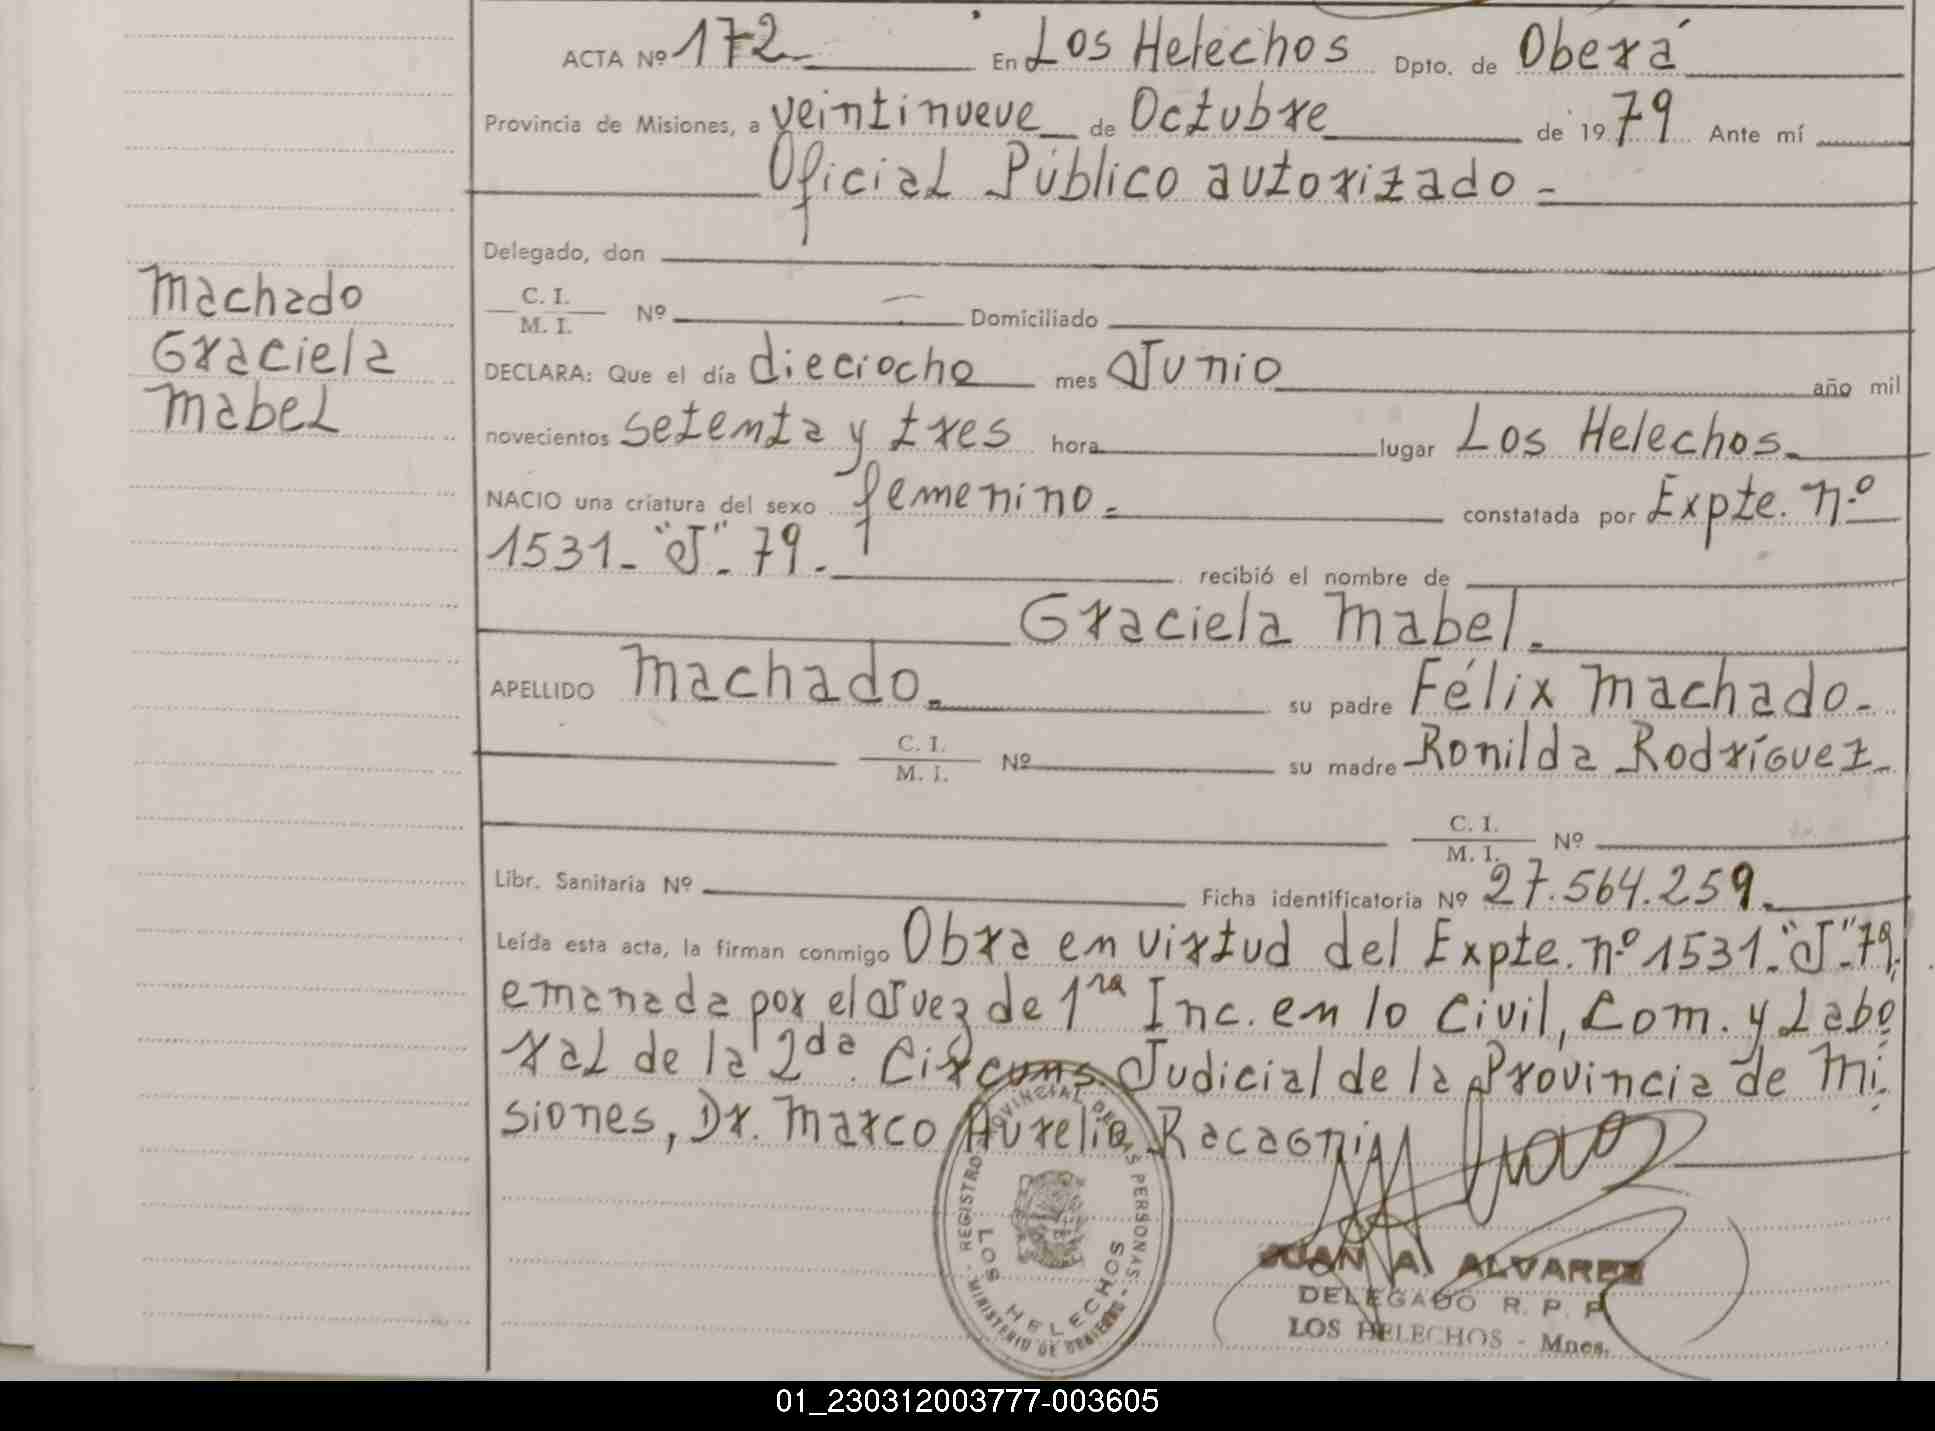 ACTA Nº 172 En Los Helechos Dpto. de Oberá
Provincia de Misiones, a veintinueve de Octubre de 1979 Ante mí
Oficial Público autorizado -
Delegado, don
C. I.
M. I. Nº Domiciliado
Machado
Graciela
Mabel
DECLARA: Que el día dieciocho mes Junio año mil
novecientos setenta y tres hora lugar Los Helechos.
NACIO una criatura del sexo femenino. constatada por Expte. nº
1531-"J"-79.- recibió el nombre de
Graciela Mabel.
APELLIDO Machado. su padre Félix Machado.
C. I.
M. I. Nº su madre Ronilda Rodríguez
C. I.
M. I. Nº
Libr. Sanitaria Nº Ficha identificatoria Nº 27.564.259.
Leída esta acta, la firman conmigo Obra en virtud del Expte. nº 1531-"J"-79.
emanada por el Juez de 1ra Inc. en lo Civil, Com. y Labo
ral de la 2da. Circuns. Judicial de la Provincia de Mi
siones, Dr. Marco Aurelio Racagni
REGISTRO PROVINCIAL DE LAS PERSONAS
LOS HELECHOS
MINISTERIO DE GOBIERNO
JUAN A. ALVAREZ
DELEGADO R. P. P.
LOS HELECHOS - Mnes.
01_230312003777-003605